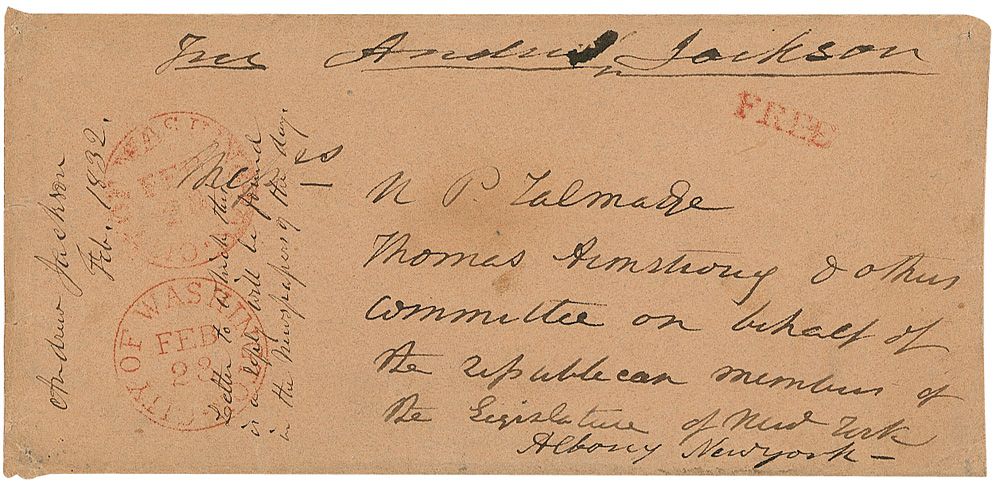 Free Andrew Jackson
FREE
Mess rs
N P. Talmadge
Thomas Armstrong & others
committee on behalf of
the republican members of
the Legislature of New York
Albany Newyork —
Andrew Jackson
Feb. 1832.
Letter to which this
is a reply will be found
in the Newspapers of the day.
CITY OF WASHINGTON
FEB
CITY OF WASHINGTON
FEB